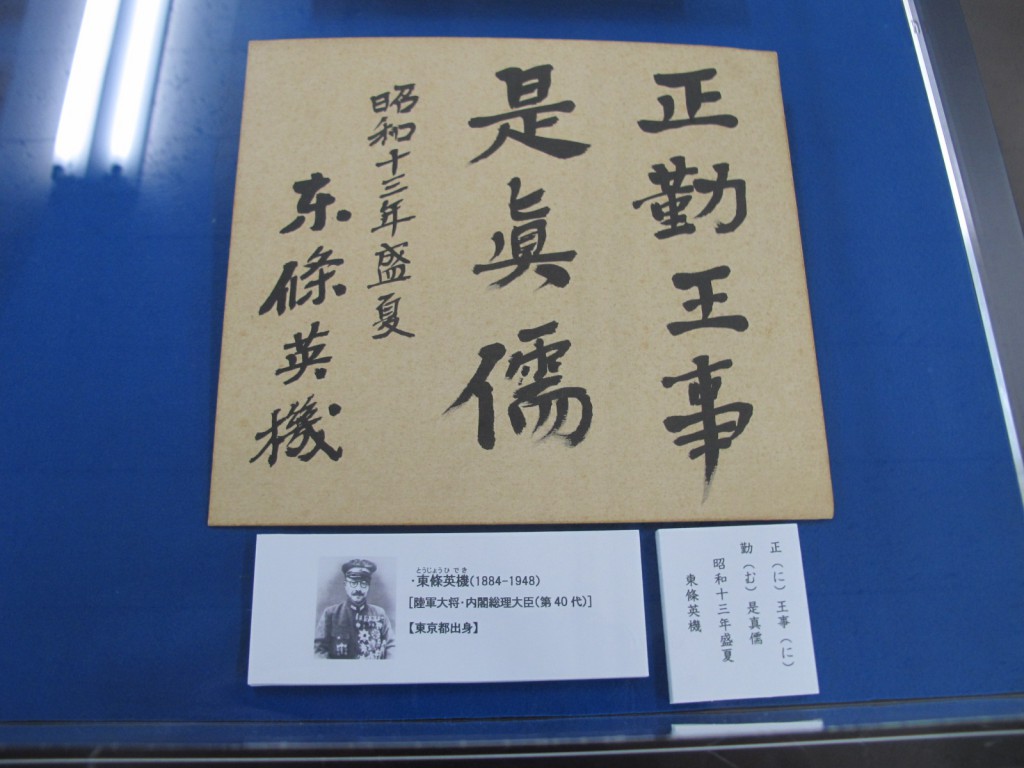 正勤王事
是眞儒
昭和十三年盛夏
东條英機
とうじょうひでき
・東條英機(1884-1948)
[陸軍大将・内閣総理大臣(第40代)]
【東京都出身】
正(に)王事(に)
勤(む)是真儒
昭和十三年盛夏
東條英機